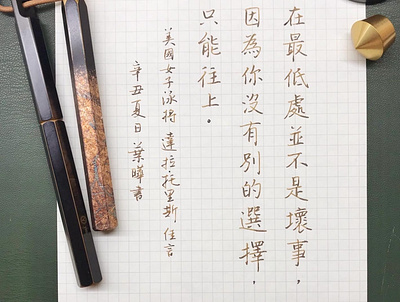 在最低處並不是壞事，
因為你沒有別的選擇，
只能往上。
美國女子泳將 達拉·托里斯 佳言
辛丑夏日 葉曄書